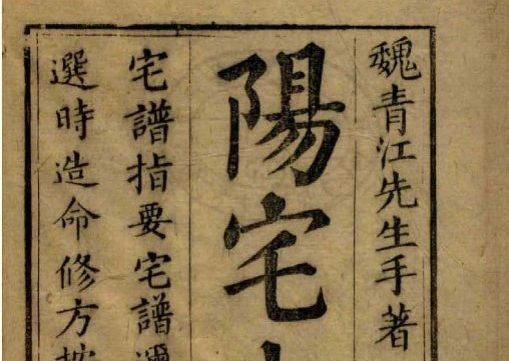 魏青江先生手著
陽宅
宅譜指要宅譜邇
選時造命修方